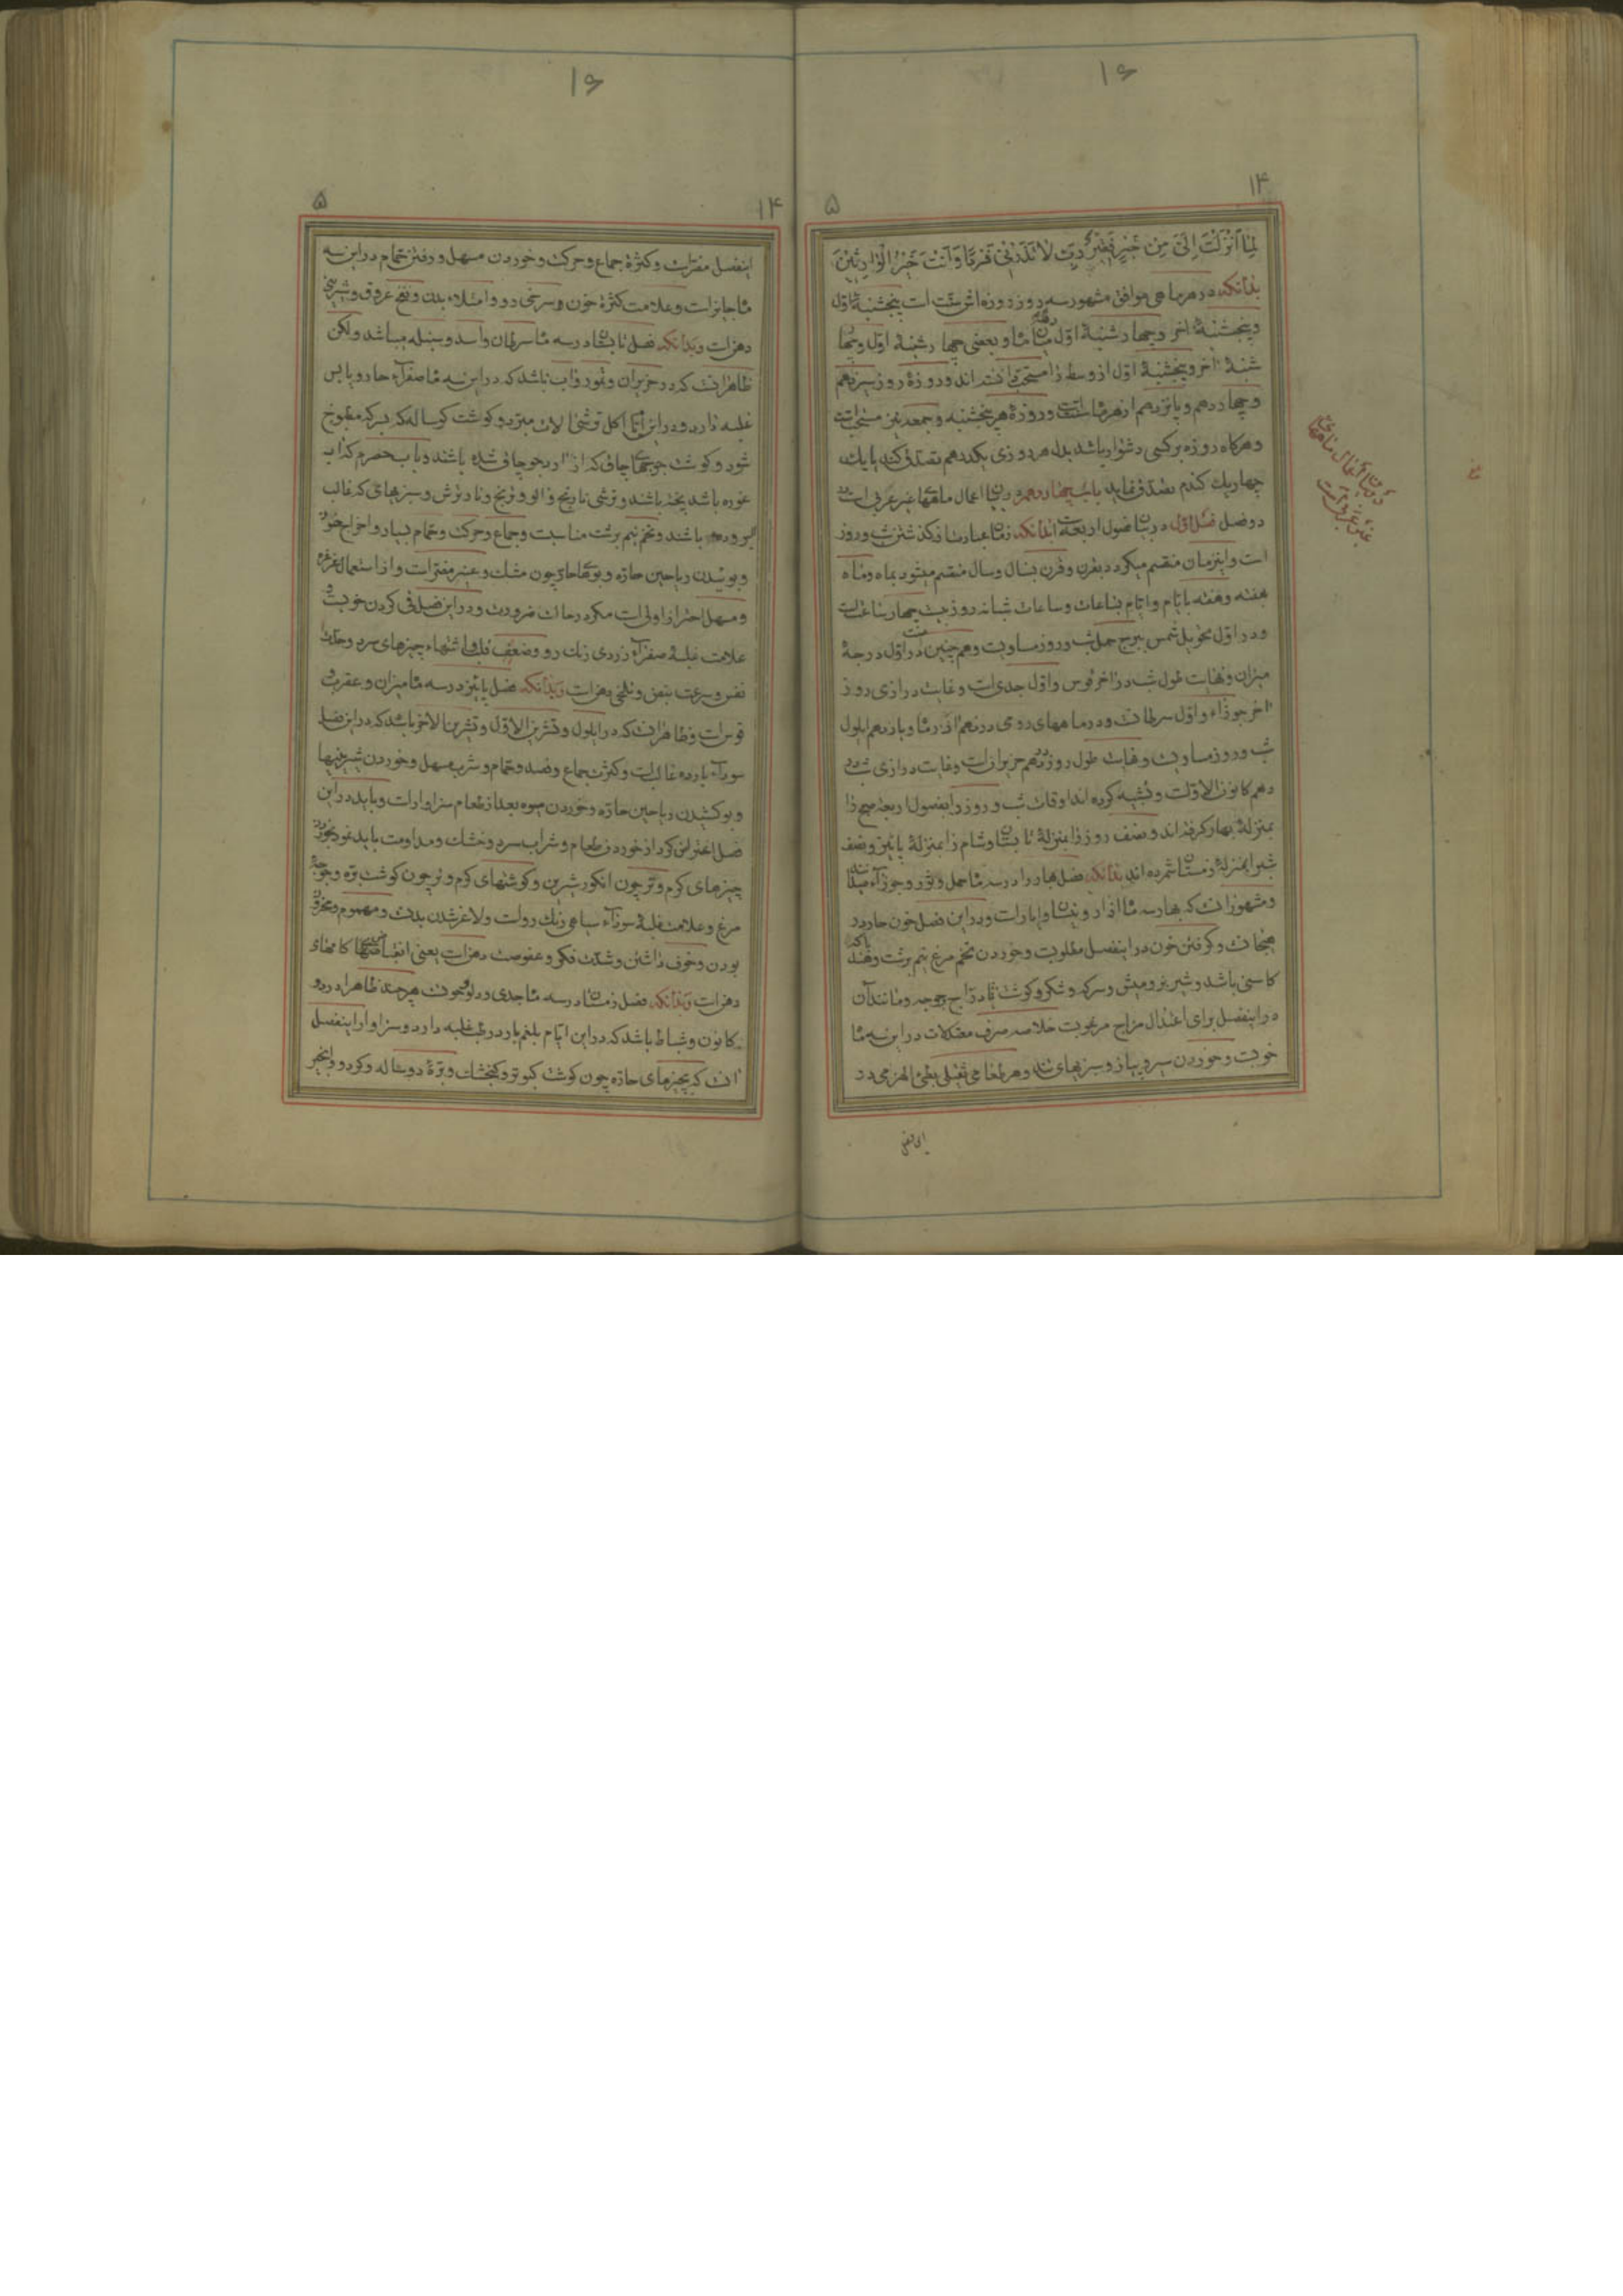 ۱۶
۱۴
۵
لِمَا أَنْزَلْتَ إِلَيَّ مِنْ خَيْرٍ فَقِيرٌ رَبِّ لَا تَذَرْنِي فَرْدًا وَأَنْتَ خَيْرُ الْوَارِثِينَ
بدانکه در هر ماهی موافق مشهور سه روز روزه اش سنت است پنجشنبهٔ اول
و پنجشنبهٔ آخر و چهارشنبهٔ اول میانهٔ ماه و بعضی چهارشنبهٔ اول و چهار
شنبهٔ آخر و پنجشنبهٔ اول از وسط را مستحب دانسته اند و روزهٔ روز سیزدهم
و چهاردهم و پانزدهم از هر ماه سنت است و روزهٔ هر پنجشنبه و جمعه نیز مستحب است
و هرگاه روزه بر کسی دشوار باشد بدل هر روزی یکدرهم تصدق کند یا یک
چهاریک گندم تصدق نماید باب چهاردهم در بیان اعمال ماههای غیر عربی است
دو فصل فصل اول در بیان فصول اربعه است بدانکه زمان عبارت از گذشتن شب و روز
است و این زمان منقسم میگردد بقرن و قرن بسال و سال منقسم میشود بماه و ماه
بهفته و هفته بایام و ایام بساعات و ساعات شبانه روز بیست چهار ساعت است
و در اول تحویل شمس ببرج حمل شب و روز مساویست و همچنین در اول درجهٔ
میزان و نهایت طول شب در آخر قوس و اول جدی است و غایت درازی روز
آخر جوزاء و اول سرطانست و در ماههای رومی در دهم آذر ماه و یازدهم ایلول
شب و روز مساویست و غایت طول روز دهم حزیرانست و غایت درازی شب در
دهم کانون الاولست و تشبیه کرده اند اوقات شب و روز را بفصول اربعه صبح را
بمنزلهٔ بهار گرفته اند و نصف روز را بمنزلهٔ تابستان و شام را بمنزلهٔ پائیز و نصف
شب را بمنزلهٔ زمستان شمرده اند بدانکه فصل بهار را در سه ماه حمل و ثور و جوزاء میدانند
و مشهور آنست که بهار سه ماه آذار و نیسان و ایار است و در این فصل خون حار در
هیجانست و گرفتن خون در اینفصل مطلوبست و خوردن تخم مرغ نیم برشت و هندبا که
کاسنی باشد و شیر بز و میش و سرکه و شکر و گوشت دراج و جوجه و مانند آن
در اینفصل برای اعتدال مزاج مرغوبست خلاصه صرف معتدلات در این سه ماه
خوبست و خوردن سیر و پیاز و سبزیهای تند و هر طعامی ثقیل بطئ الهضمی در
در بیان اعمال ماههای
غیر عربی است
۱۶
۱۴
۵
اینفصل مضر است و کثرة جماع و حرکت و خوردن مسهل و رفتن حمام در این سه
ماه جایز است و علامت کثرة خون و سرخی رو و امتلاء بدن و نفخ عروق و شیرینی
دهن است و بدانکه فصل تابستان در سه ماه سرطان و اسد و سنبله میباشد و لکن
ظاهر آنست که در حزیران و تموز و آب باشد که در این سه ماه صفرآء حار و یابس
غلبه دارد و در این ایام اکل ترشی آلات مبرد و گوشت گوساله که بسرکه مطبوخ
شود و گوشت جوجهای چاق که از آرد جو چاق شده باشند و بآب حصرم که آب
غوره باشد پخته باشند و ترشی نارنج و آلو و ترنج و نار ترش و سبزیهای که غالب
باشند و تخم نیم برشت مناسبست و جماع و حرکت و حمام بسیار و اخراج خون
و بوئیدن ریاحین حاره و بویهای حار چون مشک و عنبر مضر است و از استعمال غرغره
و مسهل احتراز اولی است مگر در حالت ضرورت و در این فصل قی کردن خوبست
علامت غلبهٔ صفرآء زردی رنگ رو و ضعف قلب و اشتهاء چیزهای سرد و حدت
نفس و سرعت نبض و تلخی دهن است و بدانکه فصل پائیز در سه ماه میزان و عقرب و
قوس است و ظاهر آنست که در ایلول و تشرین الاول و تشرین الآخر باشد که در این فصل
سودآء بارده غالب است و کثرت جماع و فصد و حمام و شرب مسهل و خوردن شیرینیها
و بو کشیدن ریاحین حاره و خوردن میوه بعد از طعام سزاوار است و باید در این
فصل اعتراض کرد از خوردن طعام و شراب سرد و خشک و مداومت باید نمود بخوردن
چیزهای گرم و تر چون انگور شیرین و گوشتهای گرم و تر چون گوشت بره و جوجهٔ
مرغ و علامت غلبهٔ سودآء سیاهی رنگ رو است و لاغر شدن بدن و مهموم و محزون
بودن و خوف داشتن و شدت فکر و عفوصت دهن است یعنی
دهن است و بدانکه فصل زمستان در سه ماه جدی و دلو و حوت هر چند ظاهرا در دو
کانون و شباط باشد که در این ایام بلغم بارد رطب غلبه دارد و سزاوار اینفصل
آنست که بچیزهای حاره چون گوشت کبوتر و گنجشک و برهٔ دوساله و گردو و انجیر